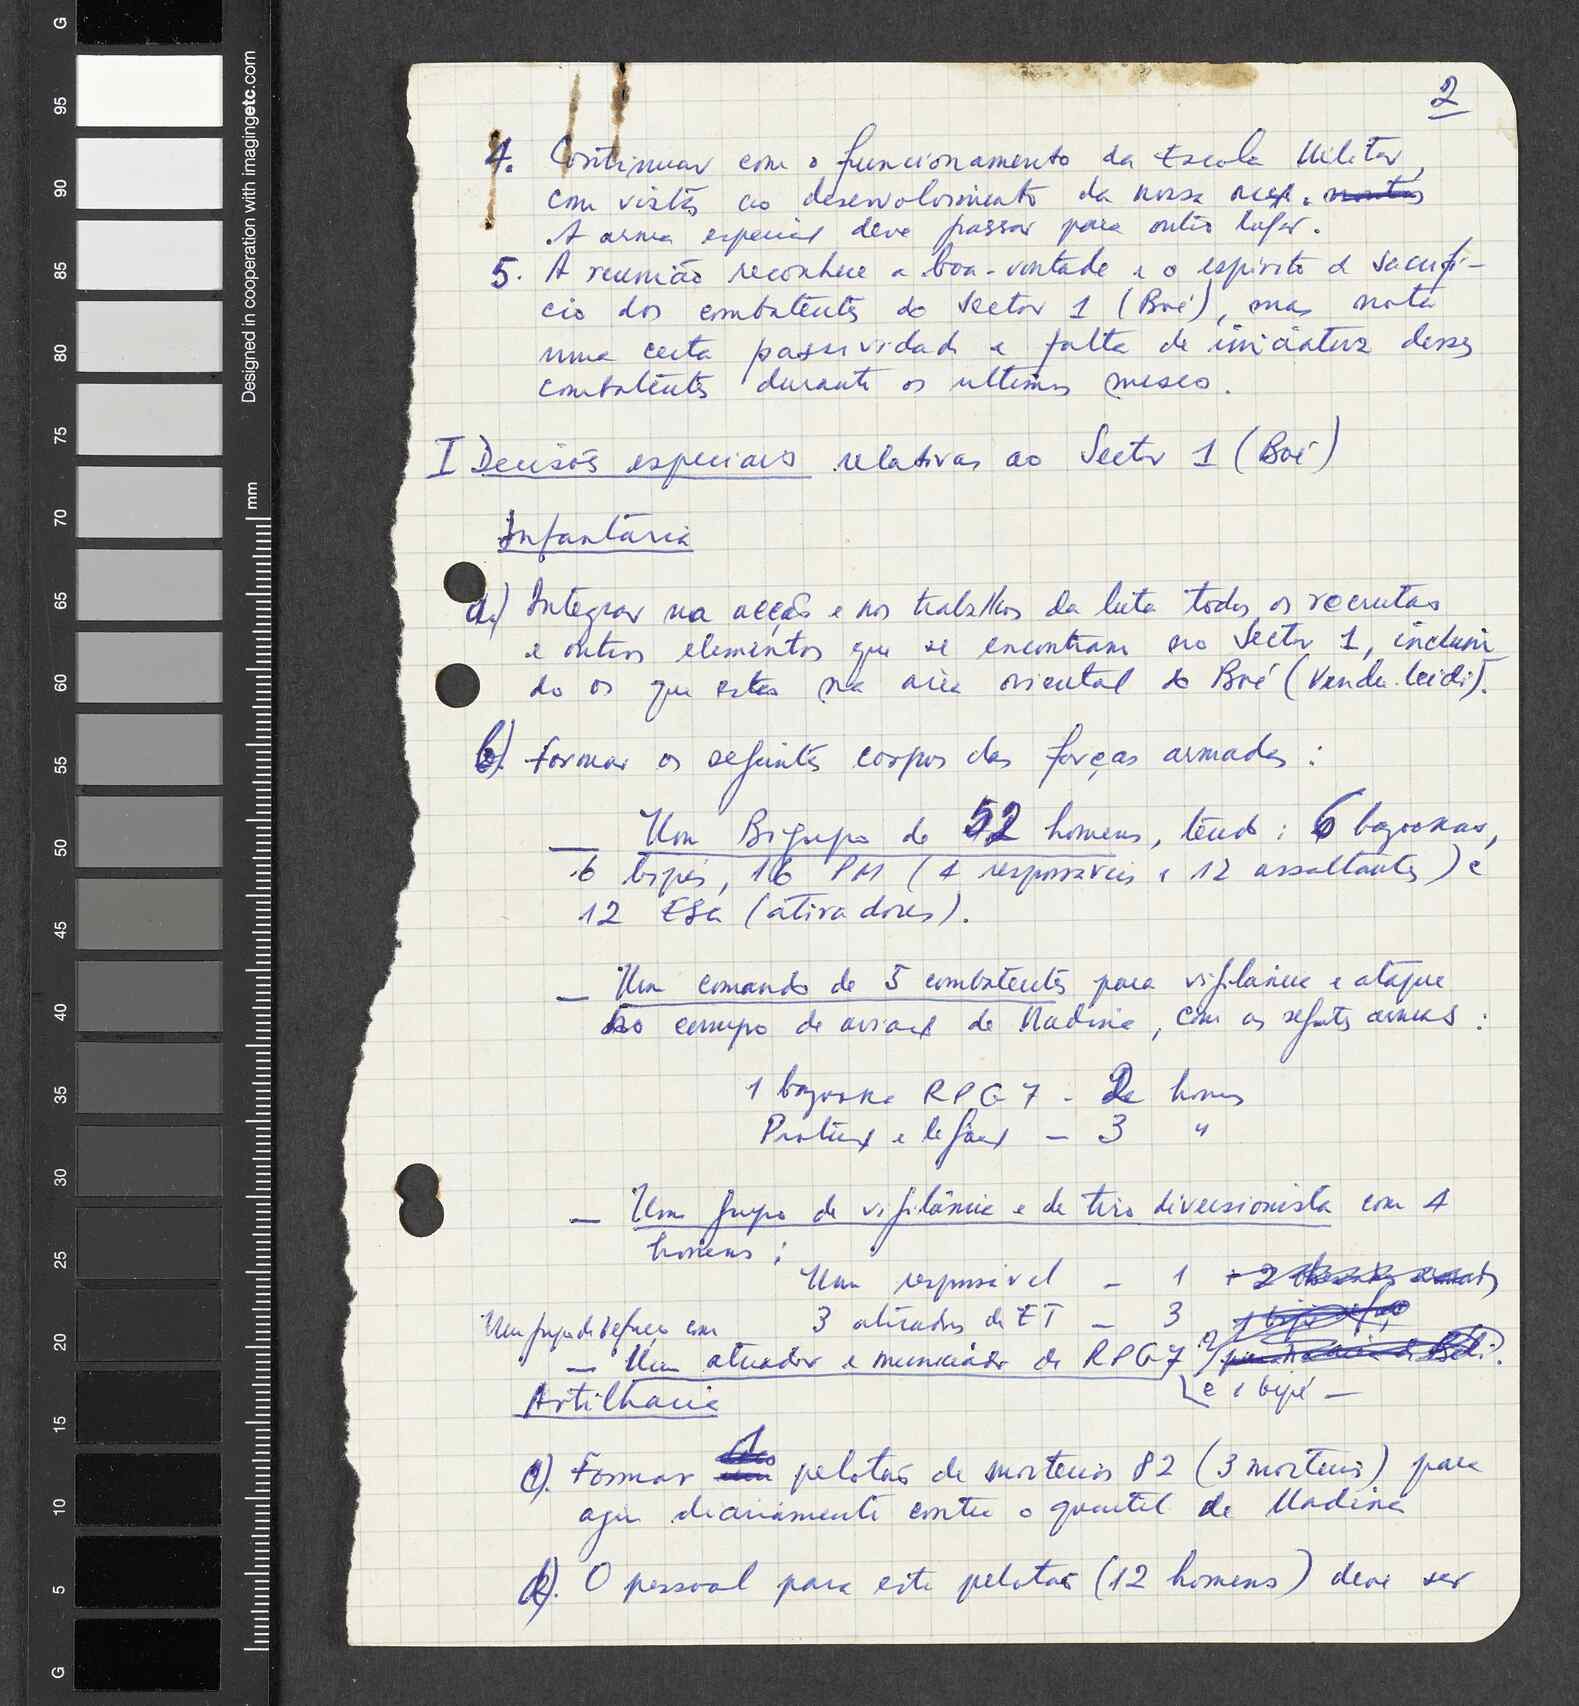 2
4. Continuar com o funcionamento da Escola Militar,
com vistas ao desenvolvimento da nossa acção.
A arma especial deve passar para outro lugar.
5. A reunião reconhece a boa-vontade e o espirito de sacrifi-
cio dos combatentes do Sector 1 (Boé), mas nota
uma certa passividade e falta de iniciativa desses
combatentes durante os ultimos meses.
I Decisões especiais relativas ao Sector 1 (Boé)
Infantaria
a.) Integrar na acção e nos trabalhos da luta todos os recrutas
e outros elementos que se encontram no Sector 1, incluin
do os que estão na área oriental do Boé (Vendu Leidi).
b). Formar os seguintes corpos das forças armadas :
— Um Bigrupo de 52 homens, tendo : 6 bazookas,
6 bipés, 16 PM (4 responsáveis e 12 assaltantes) e
12 ESA (atiradores).
— Um comando de 5 combatentes para vigilância e ataque
ao campo de aviação de Madina, com as seguintes armas :
1 bazooka RPG 7 - 2 homens
— 3 "
— Um grupo de vigilância e de tiro diversionista com 4
homens :
Um responsável — 1
3 atiradores de ET — 3
Um grupo de reforço com
— Um atirador e municiador de RPG7
e 1 bipé —
Artilharia
c). Formar 1 pelotão de morteiros 82 (3 morteiros) para
agir diariamente contra o quartel de Madina
d). O pessoal para este pelotão (12 homens) deve ser
Designed in cooperation with imagingetc.com
mm
G
95
90
85
80
75
70
65
60
55
50
45
40
35
30
25
20
15
10
5
G